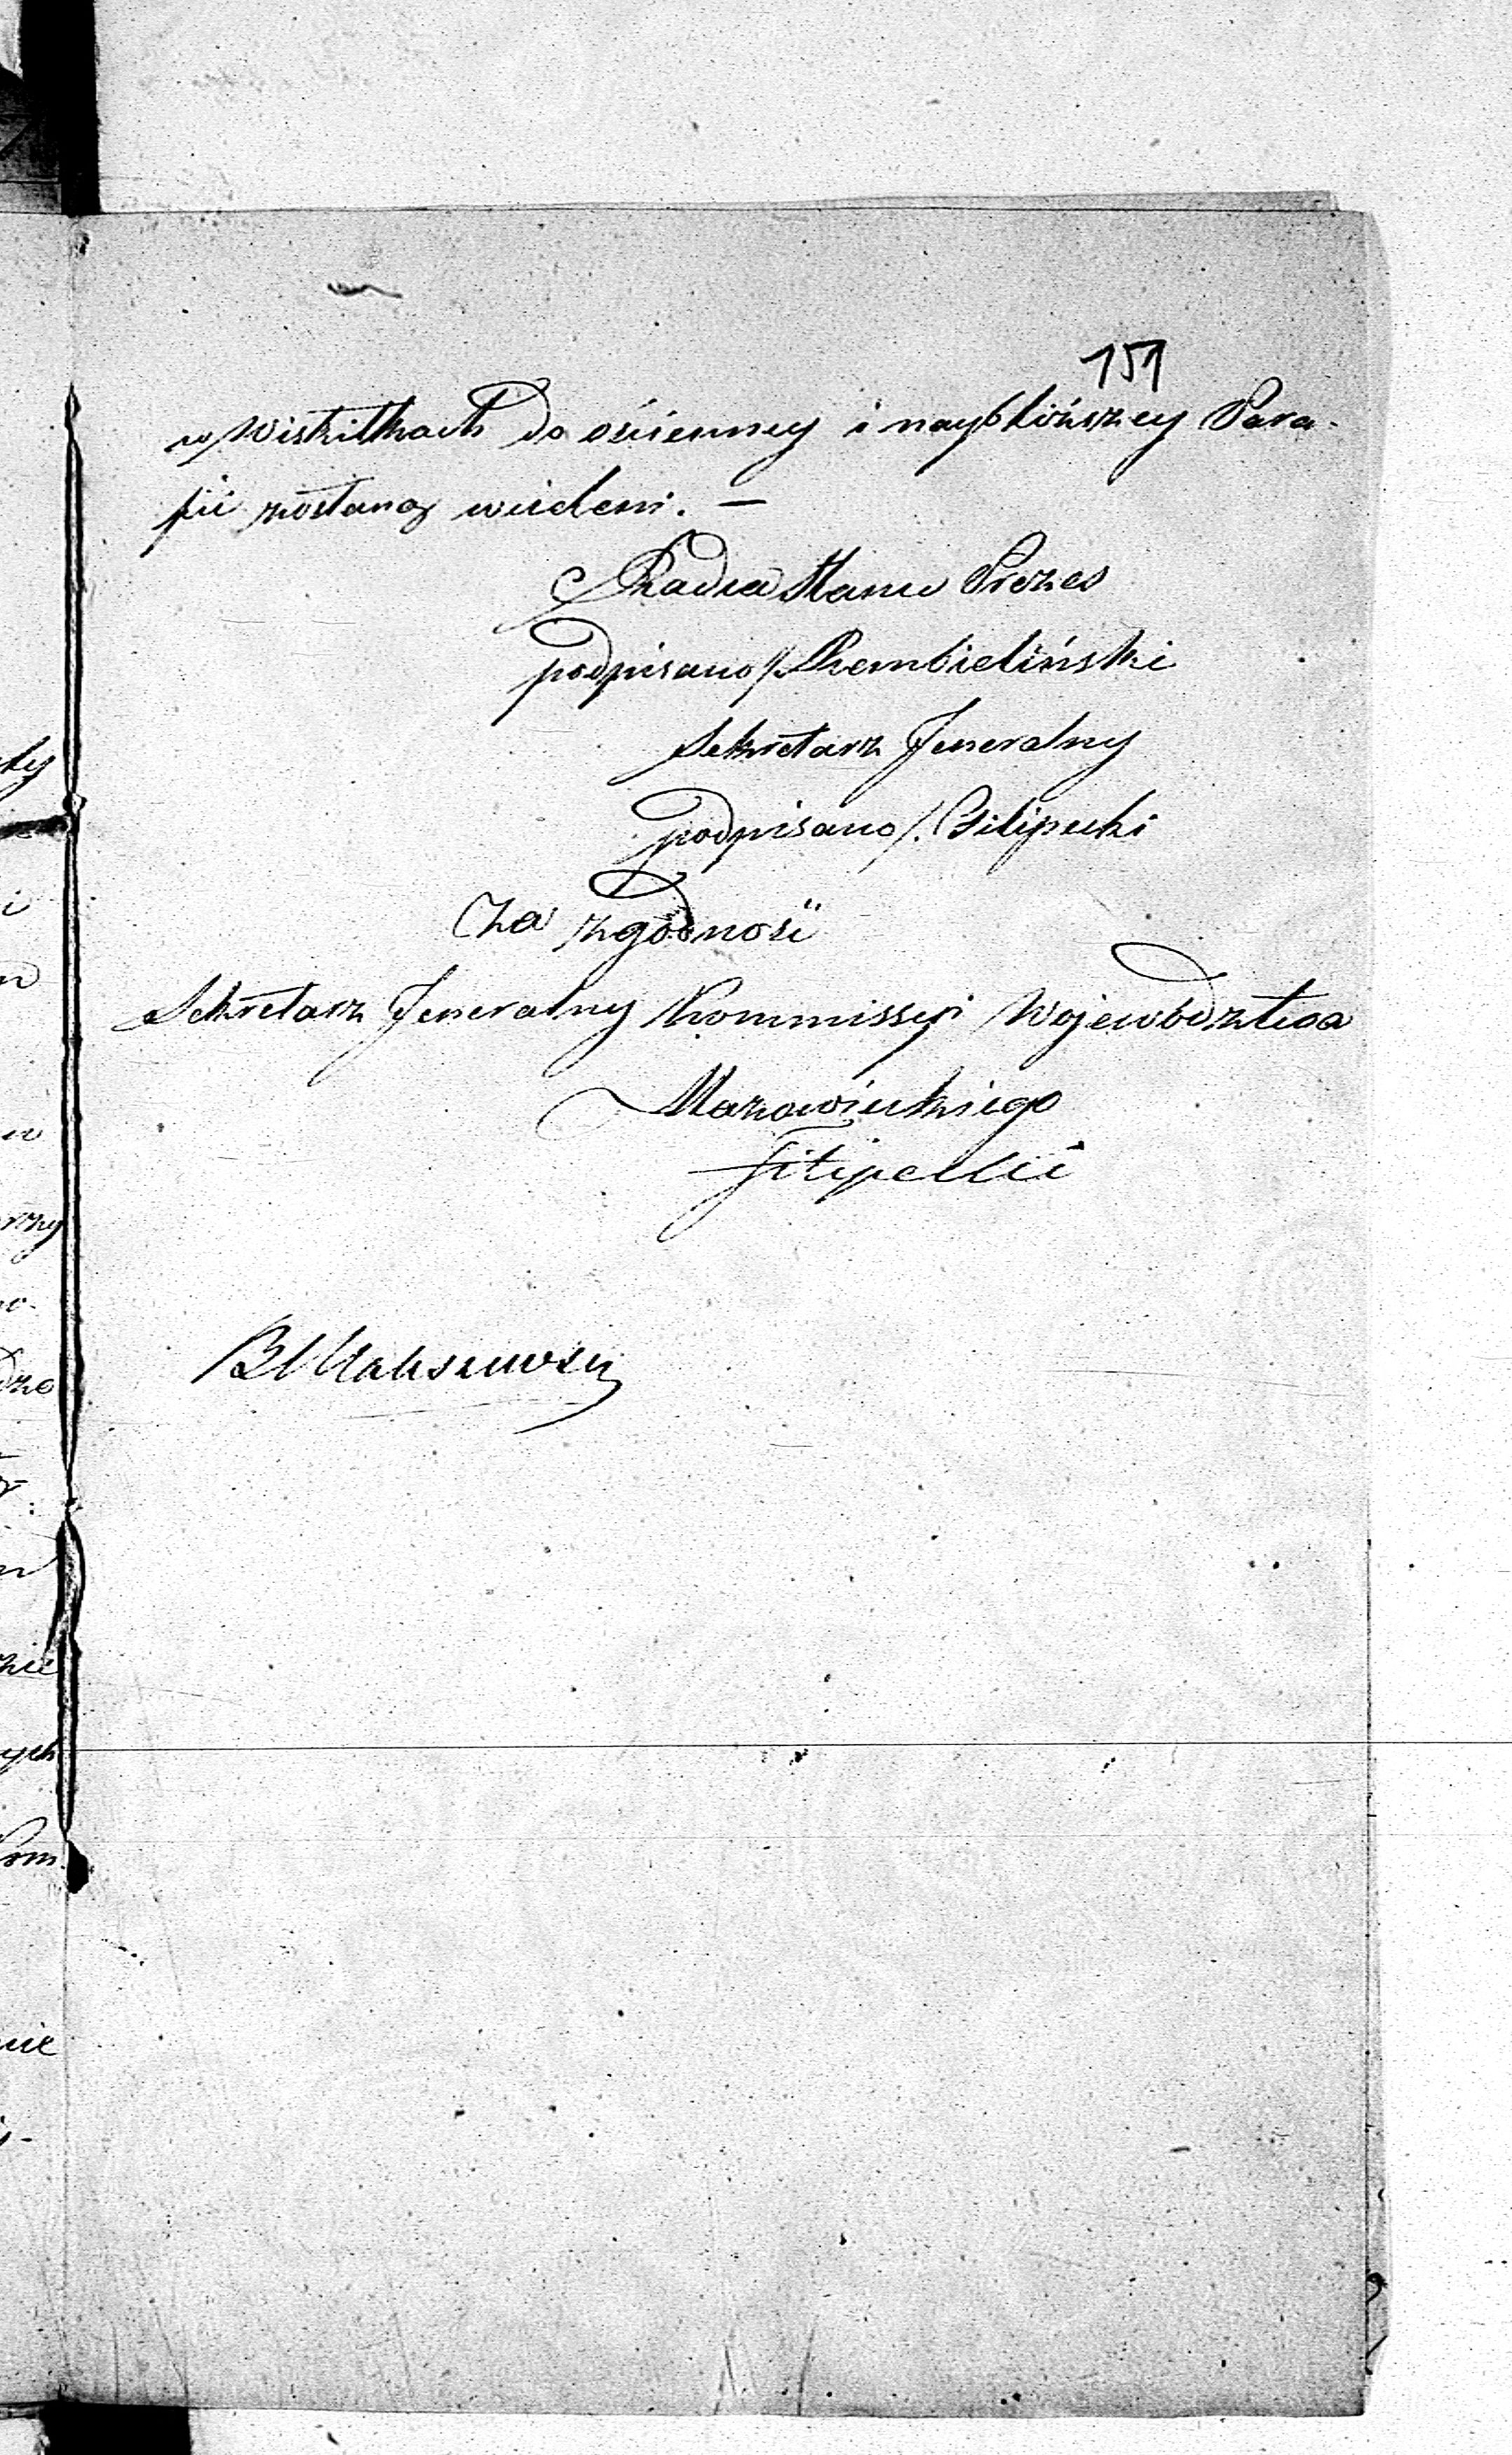 151
w Wiskitkach do ościenney i naybliższey Para-
fii zostaną wcieleni. —
Radca Stanu Prezes
podpisano /. Rembieliński
Sekretarz Jeneralny
podpisano /. Filipecki
Za zgodność
Sekretarz Jeneralny Kommissyi Wojewódzctwa
Mazowieckiego
Filipecki